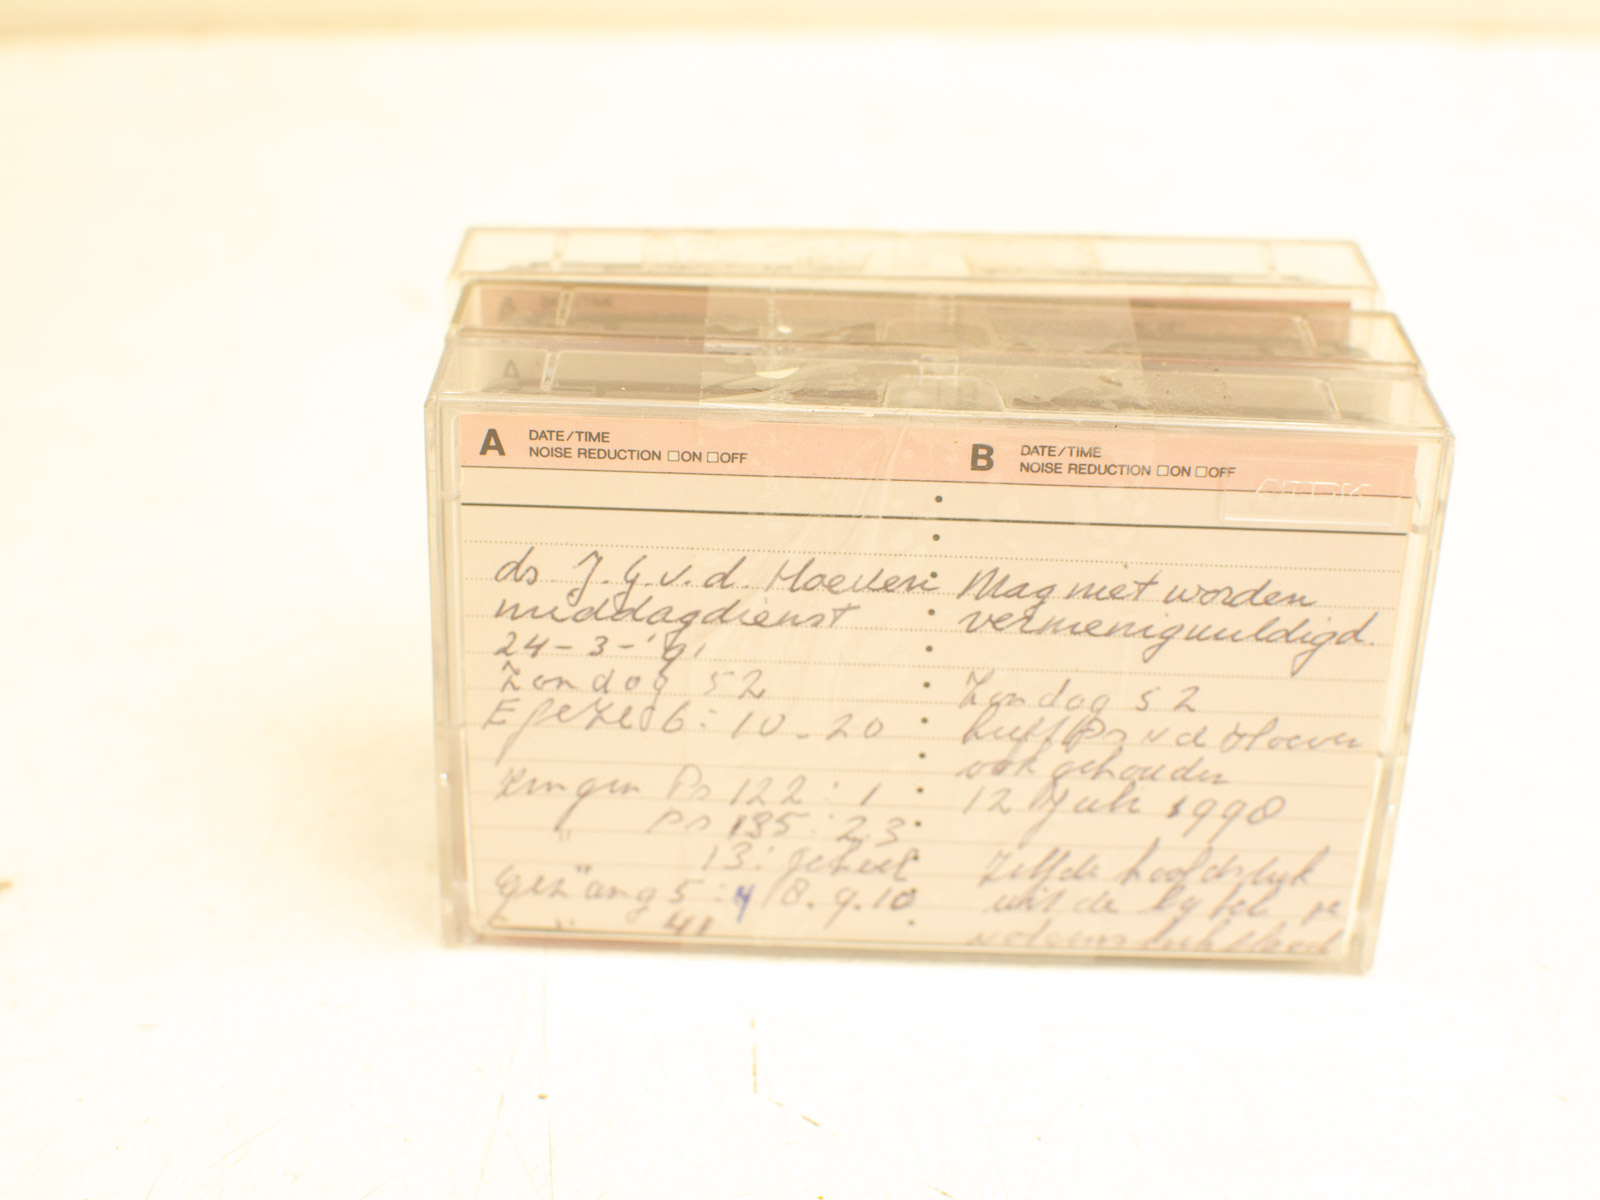 A DATE/TIME
NOISE REDUCTION □ON □OFF
ds J. G. v. d. Hoeven
middagdienst
24-3-'91
Zondag 52
Efeze 6: 10-20
Zingen Ps 122: 1
" Ps 135: 2.3
13: geheel
Gezang 5: 4 8. 9. 10
" 41
B DATE/TIME
NOISE REDUCTION □ON □OFF
TDK
Mag niet worden
vermenigvuldigd.
Zondag 52
heeft Ds v d Hoeven
ook gehouden
12 Juli 1990
Zelfde hoofdstuk
uit de bybel